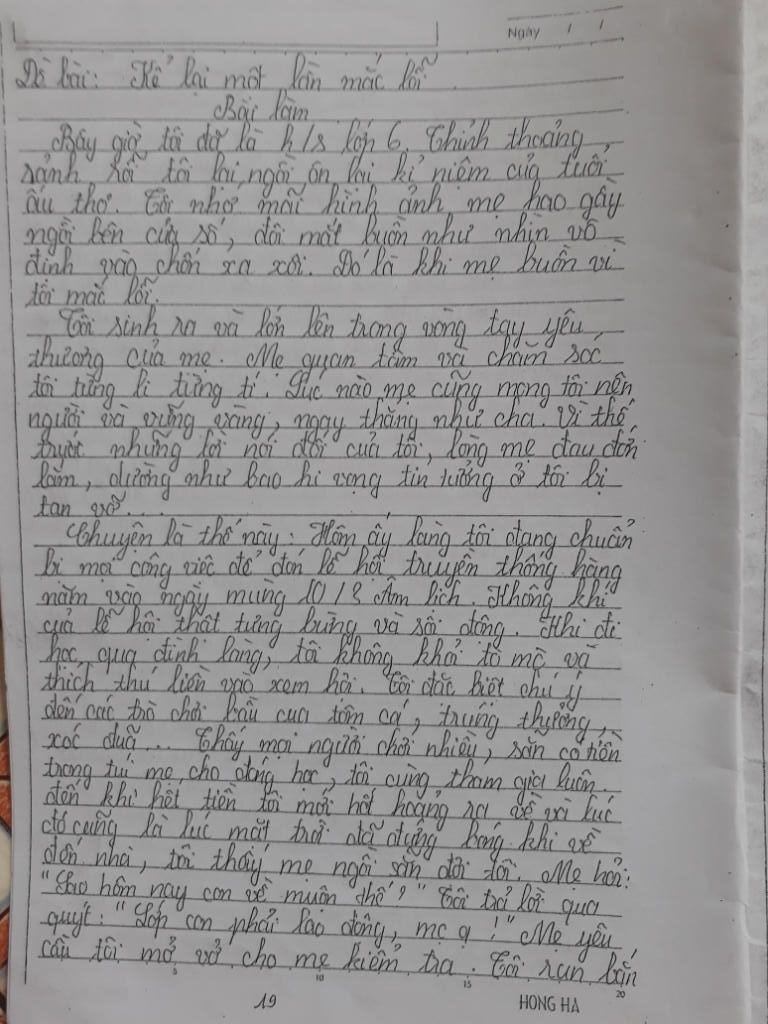 Ngày / /
Đề bài: Kể lại một lần mắc lỗi.
Bài làm
Bây giờ, tôi đã là h/s lớp 6. Thỉnh thoảng,
rảnh rỗi tôi lại ngồi ôn lại kỉ niệm của tuổi
ấu thơ. Tôi nhớ mãi hình ảnh mẹ hao gầy
ngồi bên cửa sổ, đôi mắt buồn như nhìn vô
định vào chốn xa xôi. Đó là khi mẹ buồn vì
tôi mắc lỗi.
Tôi sinh ra và lớn lên trong vòng tay yêu
thương của mẹ. Mẹ quan tâm và chăm sóc
tôi từng li từng tí. Lúc nào mẹ cũng mong tôi nên
người và vững vàng, ngay thẳng như cha. Vì thế
trước những lời nói dối của tôi, lòng mẹ đau đớn
lắm, dường như bao hi vọng tin tưởng ở tôi bị
tan vỡ...
Chuyện là thế này: Hôm ấy làng tôi đang chuẩn
bị mọi công việc để đón lễ hội truyền thống hàng
năm vào ngày mùng 10/3 Âm lịch. Không khí
của lễ hội thật tưng bừng và sôi động. Khi đi
học, qua đình làng, tôi không khỏi tò mò và
thích thú liền vào xem hội. Tôi đặc biệt chú ý
đến các trò chơi bầu cua tôm cá, trúng thưởng,
xóc đuã... Thấy mọi người chơi nhiều, sẵn có tiền
trong túi mẹ cho đóng học, tôi cùng tham gia luôn.
đến khi hết tiền tôi mới hốt hoảng ra về và lúc
đó cũng là lúc mặt trời đã đứng bóng khi về
đến nhà, tôi thấy mẹ ngồi sẵn đợi tôi. Mẹ hỏi:
"Sao hôm nay con về muộn thế?" Tôi trả lời qua
quýt: "Lớp con phải lao động, mẹ ạ!" Mẹ yêu
cầu tôi mở vở cho mẹ kiểm tra. Tôi run bắn
5 10 15 20
19 HONG HA